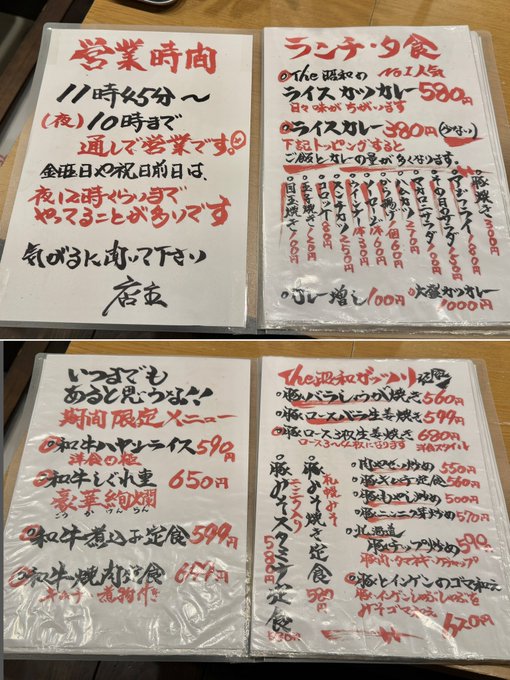 営業時間
11時45分〜
(夜)10時まで
通しで営業です。
金曜日や祝日前日は、
夜12時くらいまで
やってることが多いです
気がるに聞いて下さい
店主
ランチ・夕食
The昭和の No.1人気
ライスカツカレー580円
日々味がちがいます
ライスカレー380円(少ない)
下記トッピングすると
ご飯とカレーの量が多くなります。
豚焼き300円
ハムカツ
メンチカツ250円
コロッケ80円
玉子焼き120円
目玉焼き100円
カレー増し100円
大盛カツカレー
1000円
いつまでも
あると思うな!!
期間限定メニュー
和牛ハヤシライス590円
洋食の極
和牛しぐれ重 650円
豪華絢爛
ごうかけんらん
和牛煮込み定食 599円
和牛焼肉定食
煮物付き
The昭和ガッツリ
豚バラしょうが焼き560円
豚ロースバラ生姜焼き599円
豚ロース3枚生姜焼き680円
ロース3〜4枚になります 洋食スタイル
肉やさい炒め550円
豚キムチ定食560円
豚もやし炒め500円
豚ニンニク芽炒め570円
北海道
豚チップ炒め
豚肉・タマネギ・ケチャップ
豚とインゲンのゴマ和え
豚・インゲンしゃぶしゃぶを
みそゴマ和え
620円
札幌みそ
豚みそ焼き定食
580円
豚みそスタミナ定食